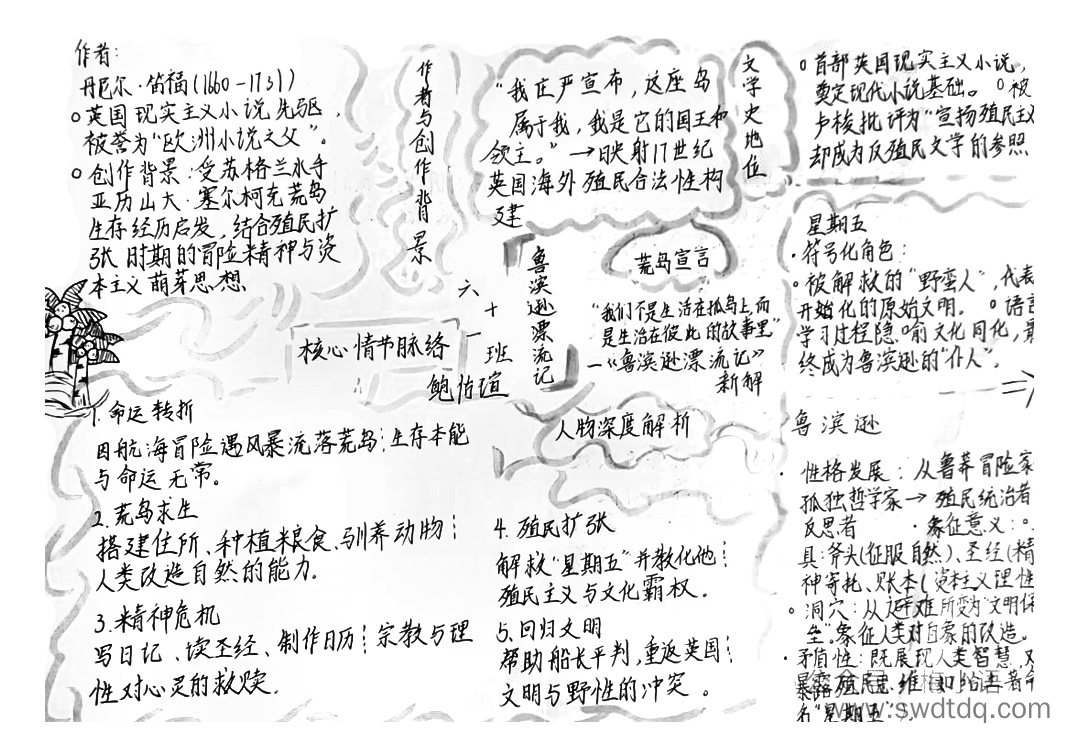 作者：
丹尼尔·笛福(1660-1731)
英国现实主义小说先驱，
被誉为“欧洲小说之父”。
创作背景：受苏格兰水手
亚历山大·塞尔柯克荒岛
生存经历启发，结合殖民扩
张时期的冒险精神与资
本主义萌芽思想
作者与创作背景
“我庄严宣布，这座岛
属于我，我是它的国王和
领主。”→映射17世纪
英国海外殖民合法性构
建
文学史地位
首部英国现实主义小说，
奠定现代小说基础。被
卢梭批评为“宣扬殖民主义
却成为反殖民文学的参照
鲁滨逊漂流记
六十一班
鲍佑瑄
荒岛宣言
“我们不是生活在孤岛上，而
是生活在彼此的故事里”
—《鲁滨逊漂流记》
新解
星期五
·符号化角色：
·被解救的“野蛮人”，代表
开始化的原始文明。语言
学习过程隐喻文化同化，最
终成为鲁滨逊的“仆人”。
核心情节脉络
1.命运转折
因航海冒险遇风暴流落荒岛；生存本能
与命运无常。
2.荒岛求生
搭建住所、种植粮食、驯养动物；
人类改造自然的能力.
3.精神危机
写日记、读圣经、制作日历；宗教与理
性对心灵的救赎.
4.殖民扩张
解救“星期五”并教化他；
殖民主义与文化霸权.
5.回归文明
帮助船长平判，重返英国；
文明与野性的冲突。
人物深度解析
鲁滨逊
·性格发展：从鲁莽冒险家
孤独哲学家→殖民统治者
反思者 ·象征意义：
具：斧头(征服自然)、圣经(精
神寄托、账本(资本主义理性
洞穴：从避难所变为“文明保
垒”.象征人类对自然的改造。
·矛盾性：既展现人类智慧，又
暴露殖民思维
名“星期五”
www.swdtdq.com